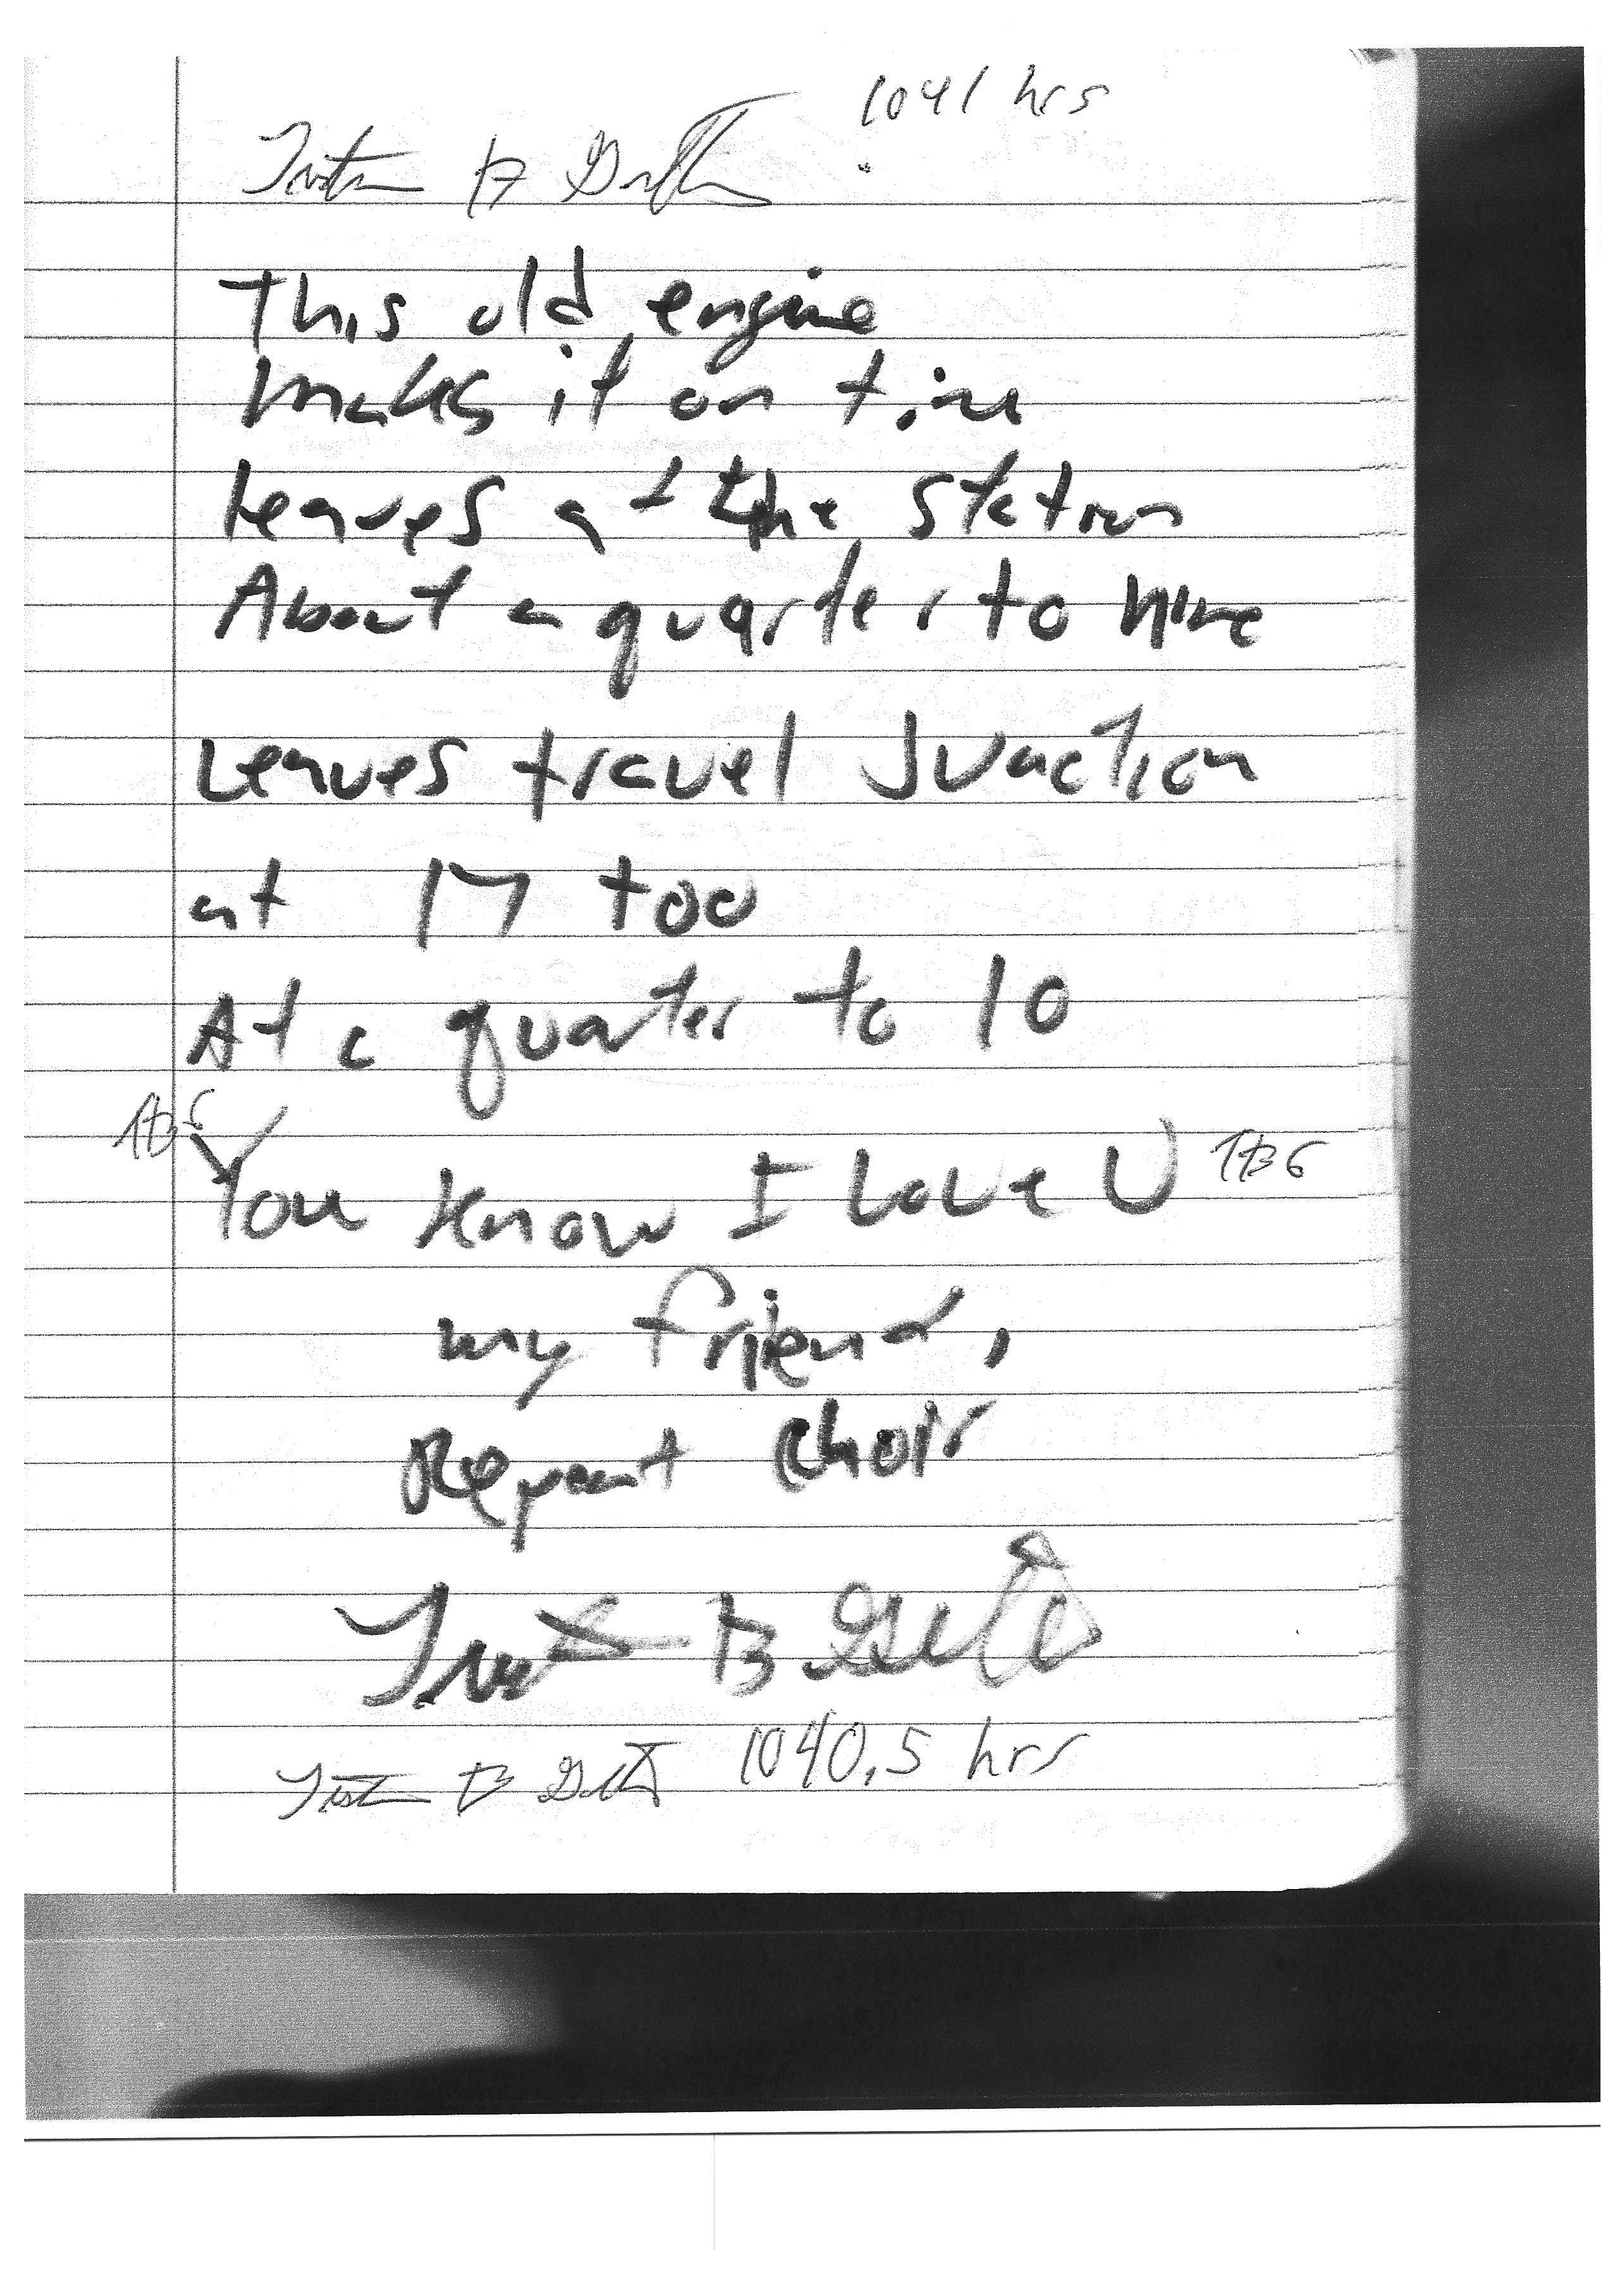 1041 hrs
This old engine
makes it on time
Leaves at the station
About a quarter to nine
Leaves travel Junction
at 17 too
At a quarter to 10
You Know I Love U
my friend,
Repeat Choir
1040.5 hrs